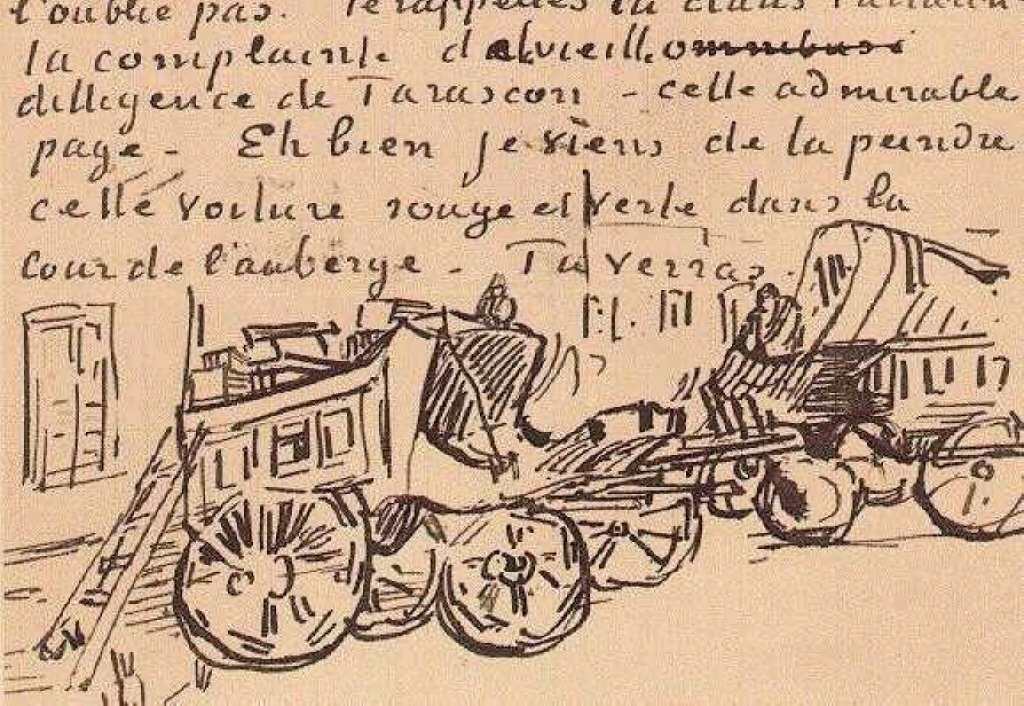 l'oublie pas. Te rappelles tu dans
la complainte de la vieille omnibus
dilligence de Tarascon - celle admirable
page - Eh bien je viens de la peindre
celle voiture rouge et verte dans la
cour de l'auberge - Tu verras.